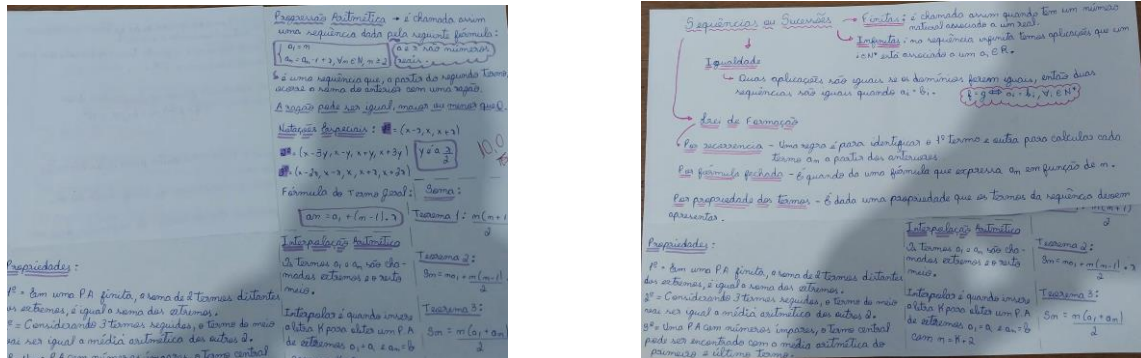 Progressão Aritmética → é chamada assim
uma sequência dada pela seguinte fórmula:
a₁ = m
aₙ = aₙ₋₁ + r, ∀n ∈ N, n ≥ 2
a e r são números
reais.
é uma sequência que, a partir do segundo termo,
ocorre a soma do anterior com uma razão.
A razão pode ser igual, maior ou menor que 0.
Notações Especiais: = (x-r, x, x+r)
= (x-3y, x-y, x+y, x+3y)
y é a r/2
= (x-2r, x-r, x, x+r, x+2r)
10.0
Fórmula do Termo Geral:
an = a₁ + (m-1).r
Soma:
Teorema 1: m(m+1
2
Interpolação Aritmética
Os termos a₁ e aₙ são cha-
mados extremos e o resto
meio.
Interpolar é quando insere
a litra K para obter um P.A
de extremos a₁ = a e aₙ = b
Teorema 2:
Sm = ma₁ + m(m-1).
2
Teorema 3:
Sm = m(a₁ + am)
2
Propriedades:
1º = Em uma PA finita, a soma de 2 termos distantes
dos extremos, é igual a soma dos extremos.
= Considerando 3 termos seguidos, o termo do meio
vai ser igual a média aritmética dos outros 2.
PA com números ímpares, o termo central
Sequências ou Sucessões → Finitas: é chamada assim quando tem um número
natural associado a um real.
Infinitas: na sequência infinita temos aplicações que um
i ∈ N* está associado a um aᵢ ∈ R.
Igualdade
Duas aplicações são iguais se os domínios forem iguais, então duas
sequências são iguais quando aᵢ = bᵢ.
f = g ⇔ aᵢ = bᵢ, ∀i ∈ N*
Lei de Formação
Por recorrência - Uma regra é para identificar o 1º termo e outra para calcular cada
termo an a partir dos anteriores
Por fórmula fechada - É quando da uma fórmula que expressa an em função de n.
Por propriedade dos termos - É dada uma propriedade que os termos da sequência devem
apresentar.
m(m+1)
2
Propriedades:
1º = Em uma PA finita, a soma de 2 termos distantes
dos extremos, é igual a soma dos extremos.
2º = Considerando 3 termos seguidos, o termo do meio
vai ser igual a média aritmética dos outros 2.
3º = Uma PA com números ímpares, o termo central
pode ser encontrado com a média aritmética do
primeiro e último termo.
Interpolação Aritmética
Os termos a₁ e aₙ são cha-
mados extremos e o resto
meio.
Interpolar é quando insere
a litra K para obter um P.A
de extremos a₁ = a e aₙ = b
com n = K + 2
Teorema 2:
Sm = ma₁ + m(m-1).r
2
Teorema 3:
Sm = m(a₁ + am)
2